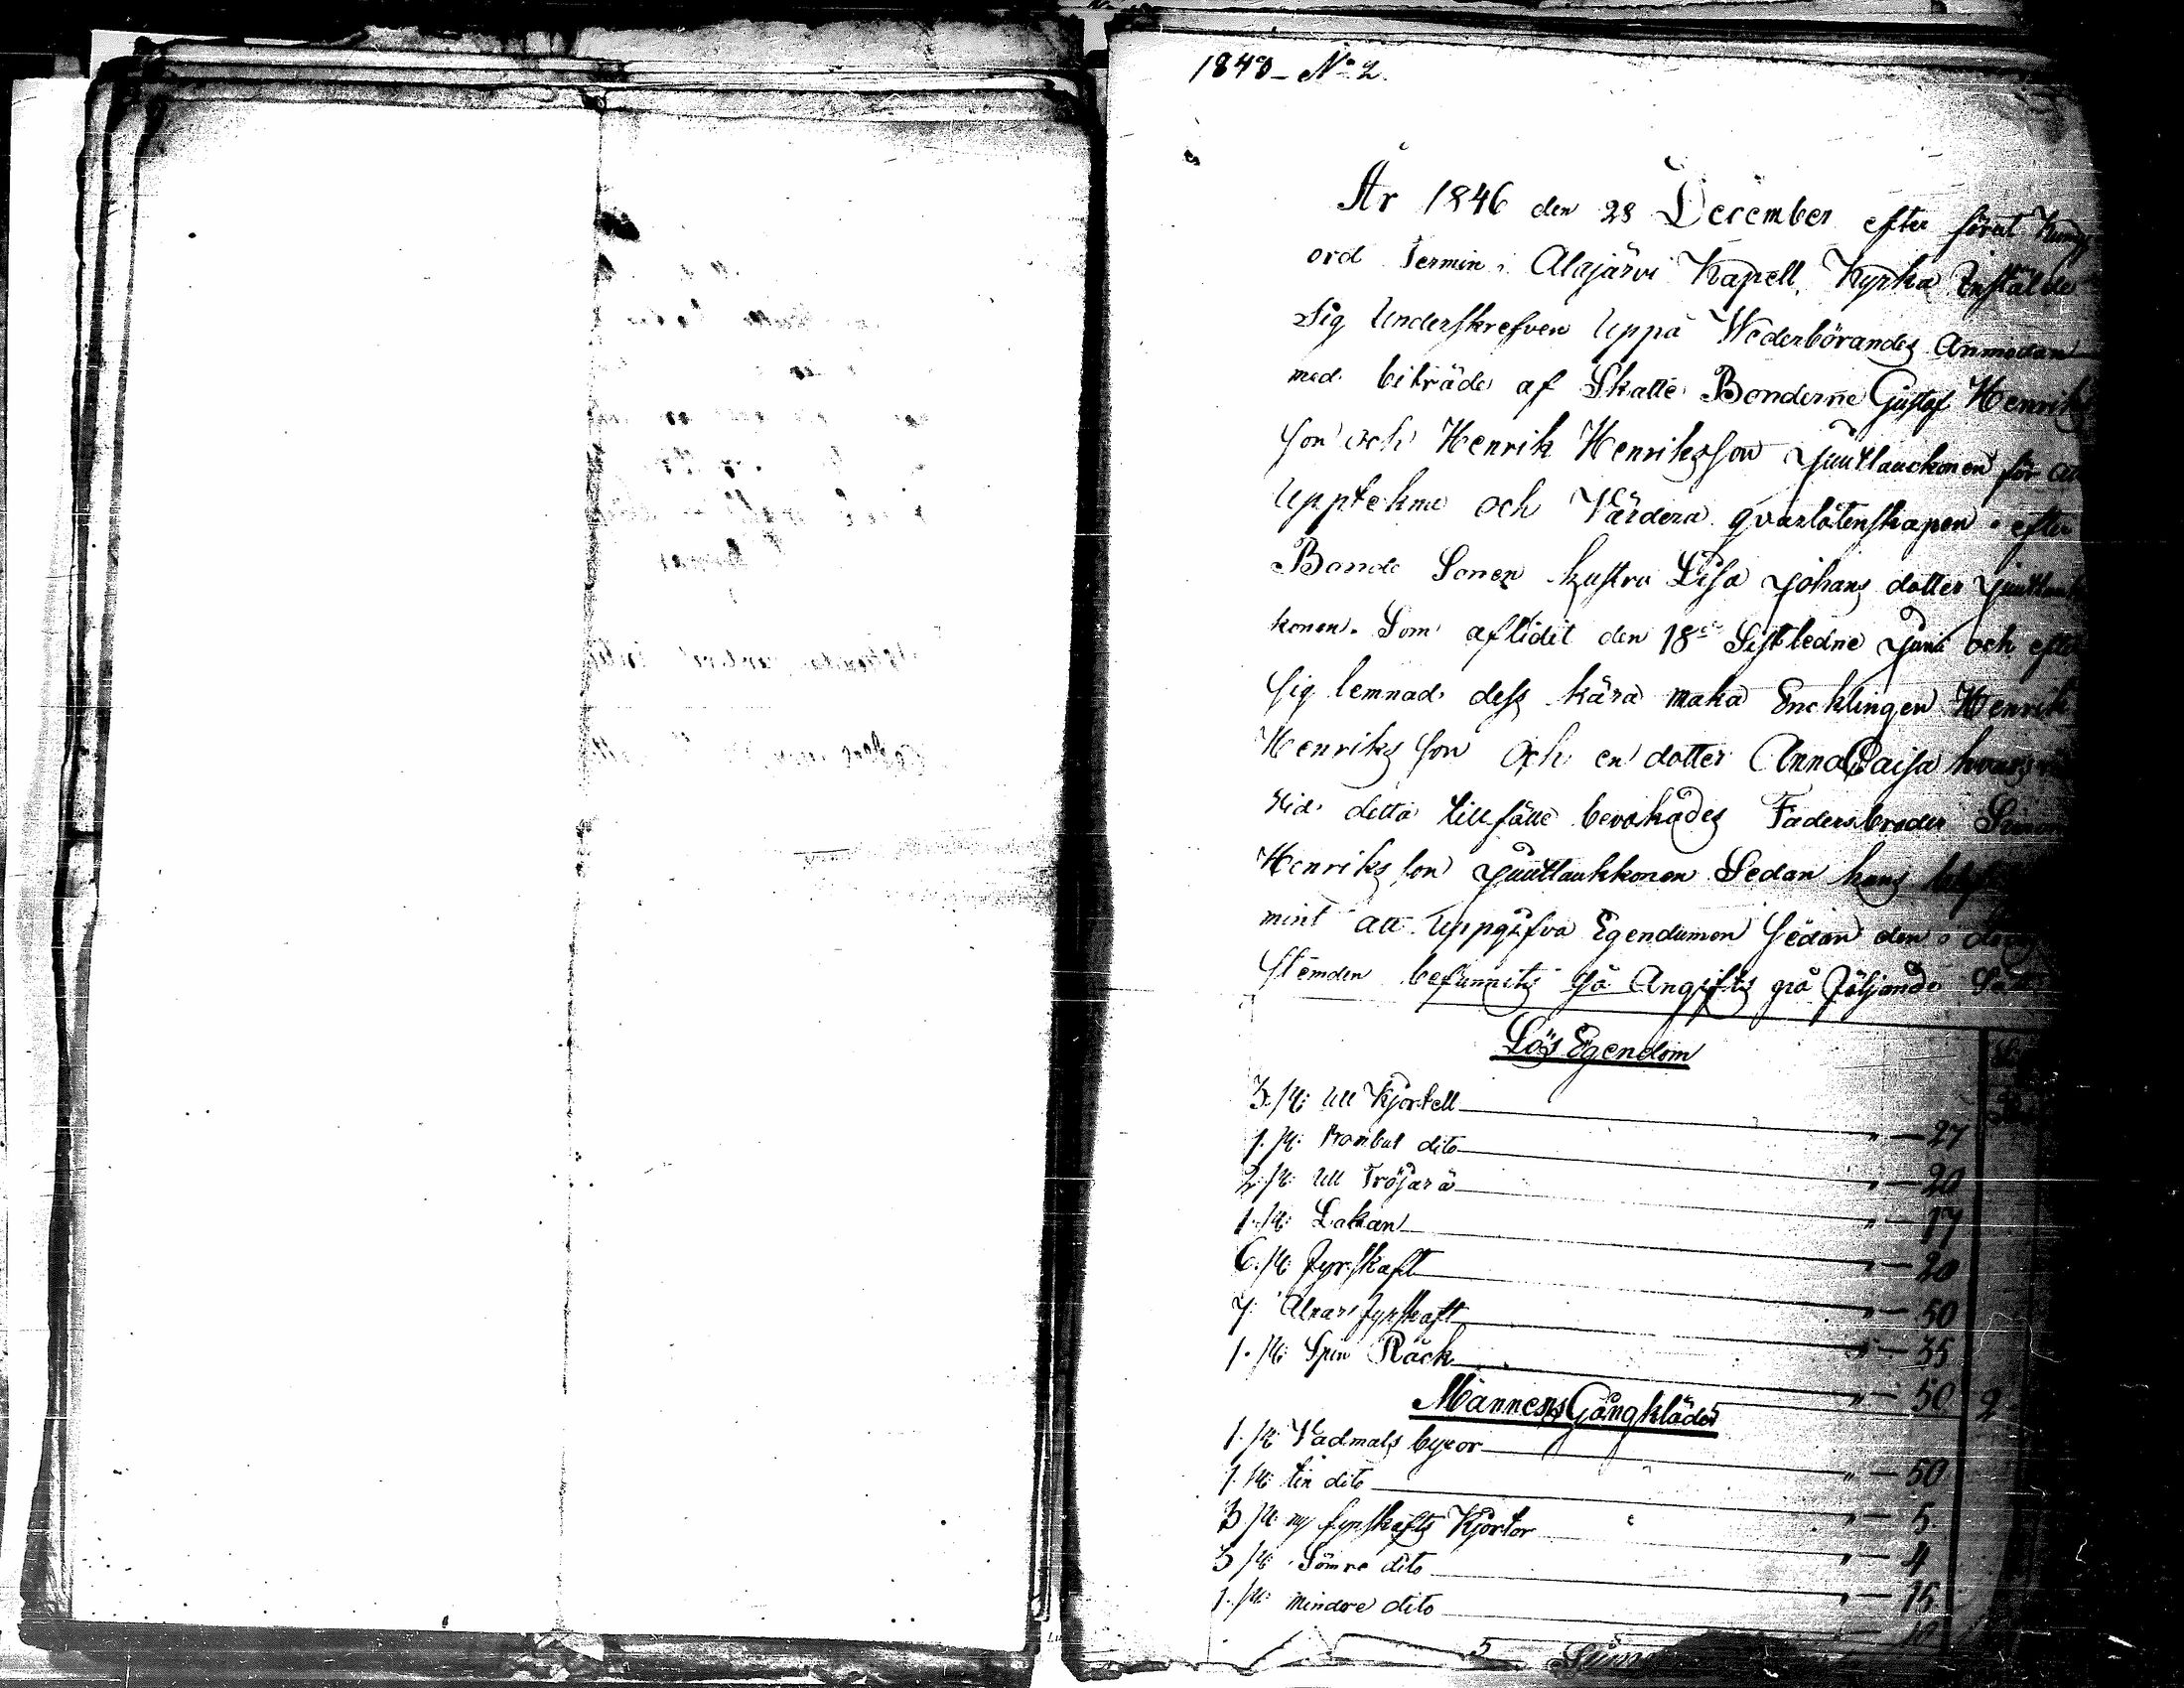 1848 - No 2.
År 1846 den 28 December efter förut
ord Termin i Alajärvi Kapell Kyrka Instälde
Sig Underskrefven Uppå Wederbörandes Anmodan
med biträde af Skatte Bönderne Gustaf Henriks
son och Henrik Henriksson Juutlauckonen för att
Upptekna och Värdera qvarlåtenskapen efter
Bonde Sonen hustru Lisa Johans dotter
konen. Som aflidit den 18de Sistledne Juni och efter
sig lemnad dess kära maka Encklingen Henrik
Henriks son och en dotter Anna Caisa
vid detta tillfälle bevakades Fadersbroder Simon
Henriks son Juutlaukkonen Sedan hans
mint att Uppgifva Egendomen sedan den i
stemden befunnits så Angifts på följande
Lös Egendom
3. st: Ull Kjortell " — 27
1. st: Bombul dito " — 20
2. st: Ull Tröjara " — 17
1. st: Lakan " — 20
6. st: fyrskaft " — 50
7. Alnar fyrskaft " — 35
1. st: Spin Råck " — 50 2
Mannens Gångkläder
1. st: Vadmals byxor " — 50
1. st: lin dito " — 5
3 st: ny fyrskafts Kjortor " — 4
3 st: Sömre dito " — 15
1. st: mindre dito